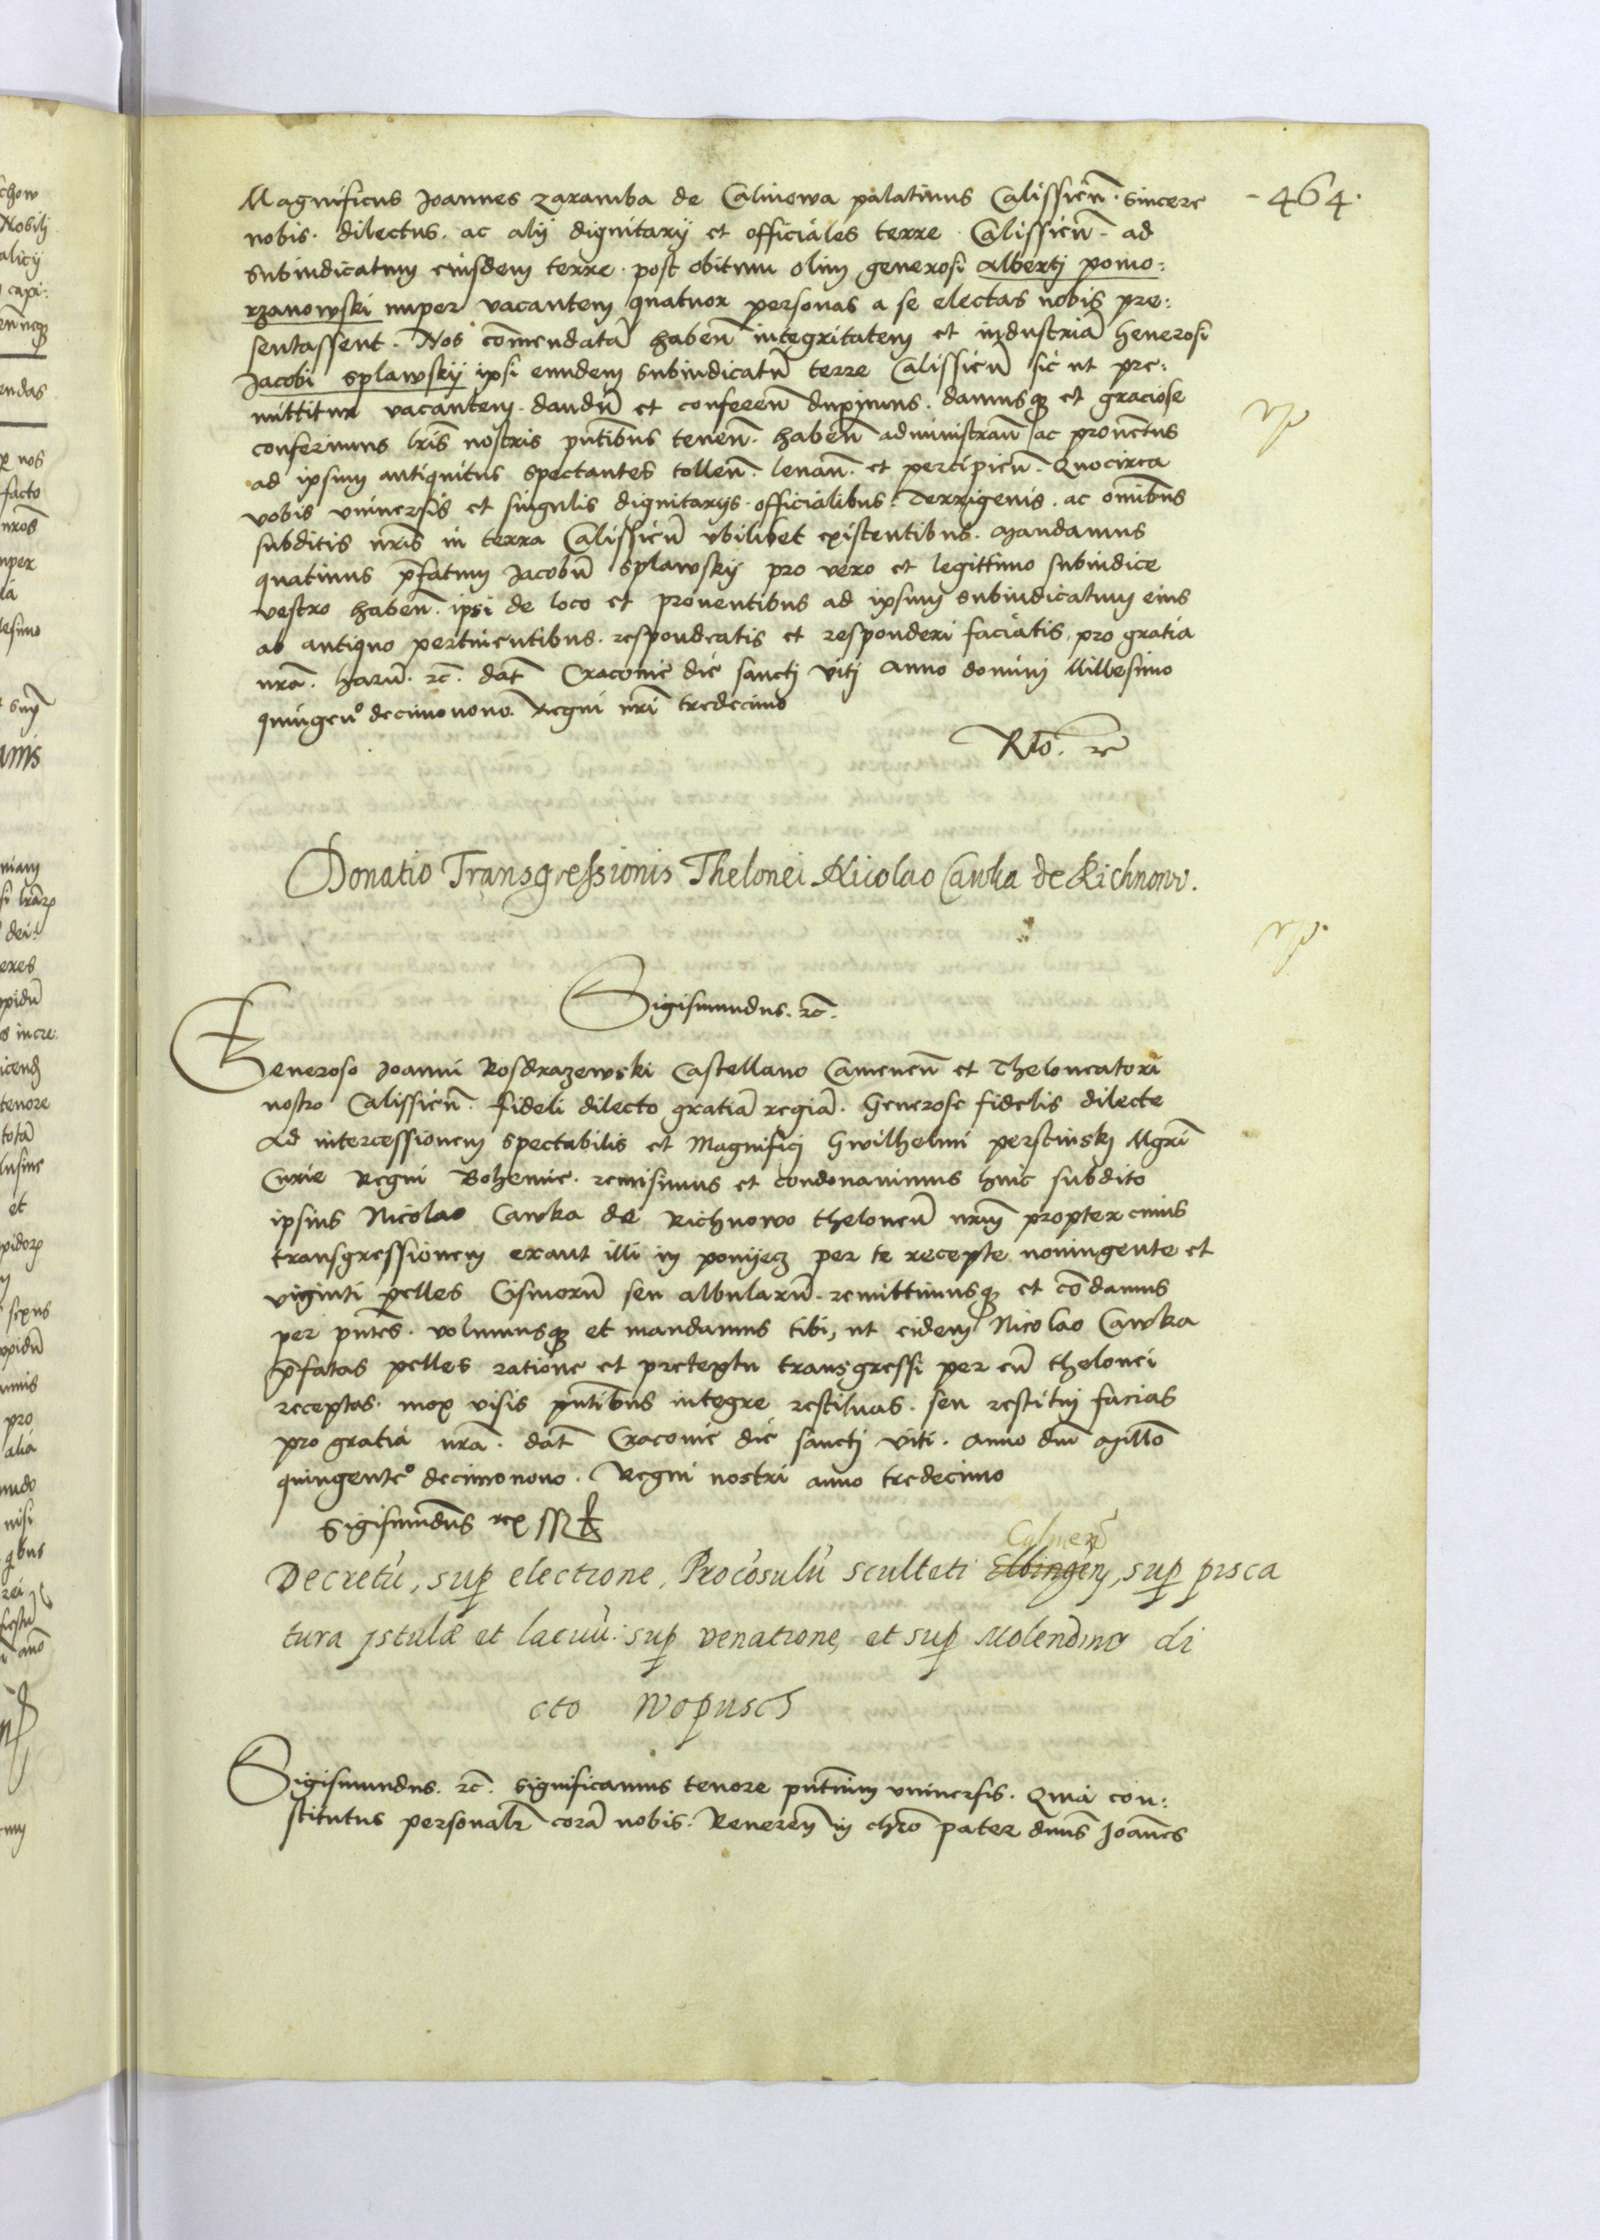 - 464 ·
Magnificus Joannes Zaramba de Calinowa palatinus Calissien̄ · sincere
nobis · dilectus · ac alij dignitarij et officiales terre · Calissien̄ · ad
subiudicatum eiusdem terre · post obitum olim generosi Albertj pomo:
rzanowski nuper vacantem quatuor personas a se electas nobis pre:
sentassent · Nos com̄endatā haben̄ integritatem et industriā Generosi
Jacobi Splawskÿ ipsi eundem subiudicatū terre Calissien̄ sic ut pre:
mittitur vacantem · dandū et conferen̄ duximus · damusqꝫ et graciose
conferimus lris̄ nostris pn̄tibus tenen̄ · haben̄ administran̄ ac prouentus
ad ipsum antiquitus spectantes tollen̄ · leuan̄ · et percipien̄ · Quocirca
vobis vniuersis et singulis dignitarijs · officialibus · Terrigenis · ac om̄ibus
subditis nr̄is in terra Calissien̄ vbilibet existentibus · Mandamus
quatinus p̄fatum Jacobū Splawskÿ pro vero et legittimo subiudice
vestro haben̄ · ipsi de loco et prouentibus ad ipsum subiudicatum eius
ab antiquo pertinentibus · respondeatis et responderi faciatis, pro gratia
nrā · harū · ꝛc̄ · dat̄ Cracouie die sanctj Vitj Anno dominj Millesimo
quingenͦ decimonono · Regni nr̄i tredecimo
Rlō · ꝛc
Donatio Transgressionis Thelonei Nicolao Cawka de Richnowo.
Sigismundus · ꝛc̄ ·
Generoso Joanni Rosdrazewski Castellano Camenen̄ et Theloneatori
nostro Calissien̄ · fideli dilecto gratiā regiā · Generose fidelis dilecte
Ad intercessionem spectabilis et Magnificj Gwilhelmi perstinskj Mgr̄i
Curie Regni Bohemie · remisimus et condonauimus huic subdito
ipsius Nicolao Cawka de Richnowo theloneū nrm̄ propter cuius
transgressionem erant illi in ponijecz per te recepte noningente et
viginti pelles Cismorū seu albularū · remittimusqꝫ et cōdamus
per pn̄tes · volumusqꝫ et mandamus tibi, ut eidem Nicolao Cawka
p̄fatas pelles ratione et pretextu transgressi per eū thelonei
receptas · mox visis pn̄tibus integre restituas · seu restitui facias
pro gratia nrā · dat̄ Cracouie die sanctj Viti · Anno dnī Millō
quingenteͦ decimonono · Regni nostri anno tredecimo
Sigismūdus rex ssꝫ
Culmen̄
Decretū, sup electione, Procōsulū sculteti Elbingen, sup pisca
tura jstulæ et lacuū · sup venatione, et sup Molendino di
cto Wopusch
Sigismundus · ꝛc̄ · Significamus tenore pn̄tium vniuersis · Quia con:
stitutus personalr̄ corā nobis · Reueren̄ in chrō pater dnūs Joānes